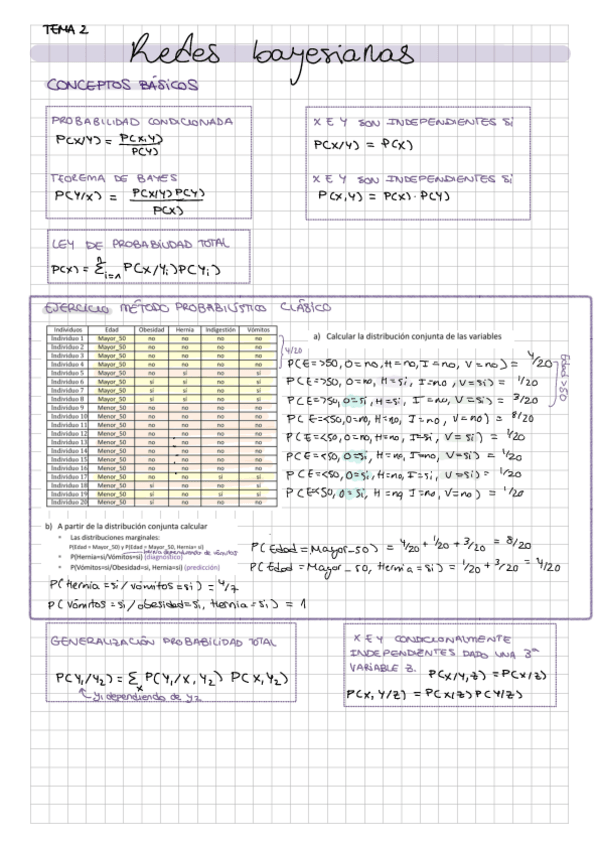 TEMA 2
Redes bayesianas
CONCEPTOS BÁSICOS
PROBABILIDAD CONDICIONADA
P(X/Y) = P(X,Y) / P(Y)
TEOREMA DE BAYES
P(Y/X) = P(X/Y) P(Y) / P(X)
X E Y SON INDEPENDIENTES SI
P(X/Y) = P(X)
X E Y SON INDEPENDIENTES SI
P(X,Y) = P(X) · P(Y)
LEY DE PROBABILIDAD TOTAL
P(X) = Σ i=1 n P(X/Yi) P(Yi)
EJERCICIO MÉTODO PROBABILÍSTICO CLÁSICO
Individuos Edad Obesidad Hernia Indigestión Vómitos
Individuo 1 Mayor_50 no no no no
Individuo 2 Mayor_50 no no no no
Individuo 3 Mayor_50 no no no no
Individuo 4 Mayor_50 no no no no
Individuo 5 Mayor_50 no si no si
Individuo 6 Mayor_50 si si no si
Individuo 7 Mayor_50 si si no si
Individuo 8 Mayor_50 si si no si
Individuo 9 Menor_50 no no no no
Individuo 10 Menor_50 no no no no
Individuo 11 Menor_50 no no no no
Individuo 12 Menor_50 no no no no
Individuo 13 Menor_50 no no no no
Individuo 14 Menor_50 no no no no
Individuo 15 Menor_50 no no no no
Individuo 16 Menor_50 no no no no
Individuo 17 Menor_50 no no si si
Individuo 18 Menor_50
Individuo 19 Menor_50 si no si si
Individuo 20 Menor_50 si no no no
4/20
a) Calcular la distribución conjunta de las variables
P(E=>50, O=no, H=no, I=no, V=no) = 4/20
P(E=>50, O=no, H=si, I=no, V=si) = 1/20
P(E=>50, O=si, H=si, I=no, V=si) = 3/20
P(E=<50, O=no, H=no, I=no, V=no) = 8/20
P(E=<50, O=no, H=no, I=si, V=si) =
P(E=<50, O=si, H=no, I=si, V=si) = 1/20
P(E=<50, O=si, H=no, I=si, V=si) = 1/20
P(E<50, O=si, H=no, I=no, V=no) = 1/20
>50
b) A partir de la distribución conjunta calcular
Las distribuciones marginales:
P(Edad = Mayor_50) y P(Edad = Mayor_50, Hernia= si)
hernia dependiendo de vómitos
P(Hernia=si/Vómitos=si) (diagnóstico)
P(Vómitos=si/Obesidad=si, Hernia=si) (predicción)
P(Edad = Mayor_50) = 4/20 + 1/20 + 3/20 = 8/20
P(Edad = Mayor_50, Hernia = si) = 1/20 + 3/20 = 4/20
P(Hernia = si / vómitos = si) = 4/7
P(Vómitos = si / obesidad = si, Hernia = si) = 1
GENERALIZACIÓN PROBABILIDAD TOTAL
P(Y1/Y2) = Σ x P(Y1/X, Y2) P(X, Y2)
Y1 dependiendo de Y2
X E Y CONDICIONALMENTE
INDEPENDIENTES DADO UNA 3ª
VARIABLE Z.
P(X/Y,Z) = P(X/Z)
P(X,Y/Z) = P(X/Z) P(Y/Z)